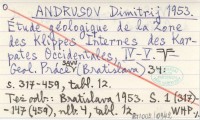 ANDRUSOV Dimitrij 1953.
Étude géologique de la zone
des Klippes Internes des Kar-
pates Occidentales, IV-V.
Geol. Práce, (Bratislava) 34:
s. 317-459, tabl. 12.
Toż odb.: Bratislava 1953. S. 1 (317)
-147 (459), tabl. 12.
WHP.